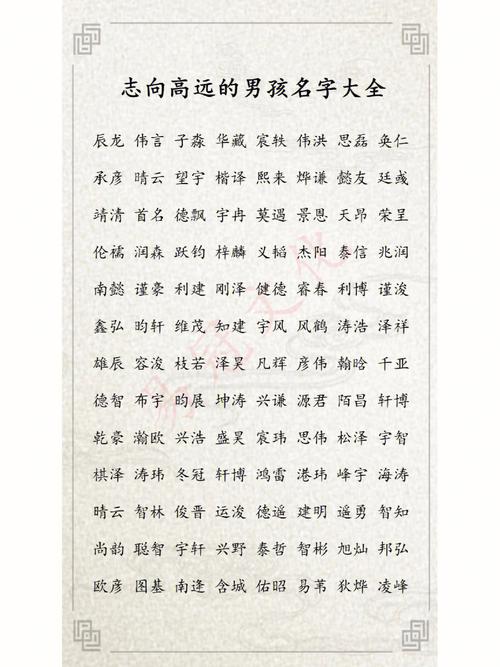 志向高远的男孩名字大全
辰龙 伟言 子淼 华藏 宸轶 伟洪 思磊 奂仁
承彦 晴云 望宇 楷译 熙来 烨谦 懿友 廷彧
靖清 首名 德飘 宇冉 莫遇 景恩 天昂 荣呈
伦襦 润森 跃钧 梓麟 义韬 杰阳 泰信 兆润
南懿 谨豪 利建 刚泽 健德 睿春 利博 谨浚
鑫弘 昀轩 维茂 知建 宇风 风鹤 涛浩 泽祥
雄辰 容浚 枝若 泽昊 凡辉 彦伟 翰晗 千亚
德智 布宇 昀展 坤涛 兴谦 源君 陌昌 轩博
乾豪 瀚欧 兴浩 盛昊 宸玮 思伟 松泽 宇智
棋泽 涛玮 冬冠 轩博 鸿雷 港玮 峰宇 海涛
晴云 智林 俊晋 运浚 德遥 建明 遥勇 智知
尚韵 聪智 宇轩 兴野 泰哲 智彬 旭灿 邦弘
欧彦 图基 南逢 含城 佑昭 易苇 狄烨 凌峰
易冠文化